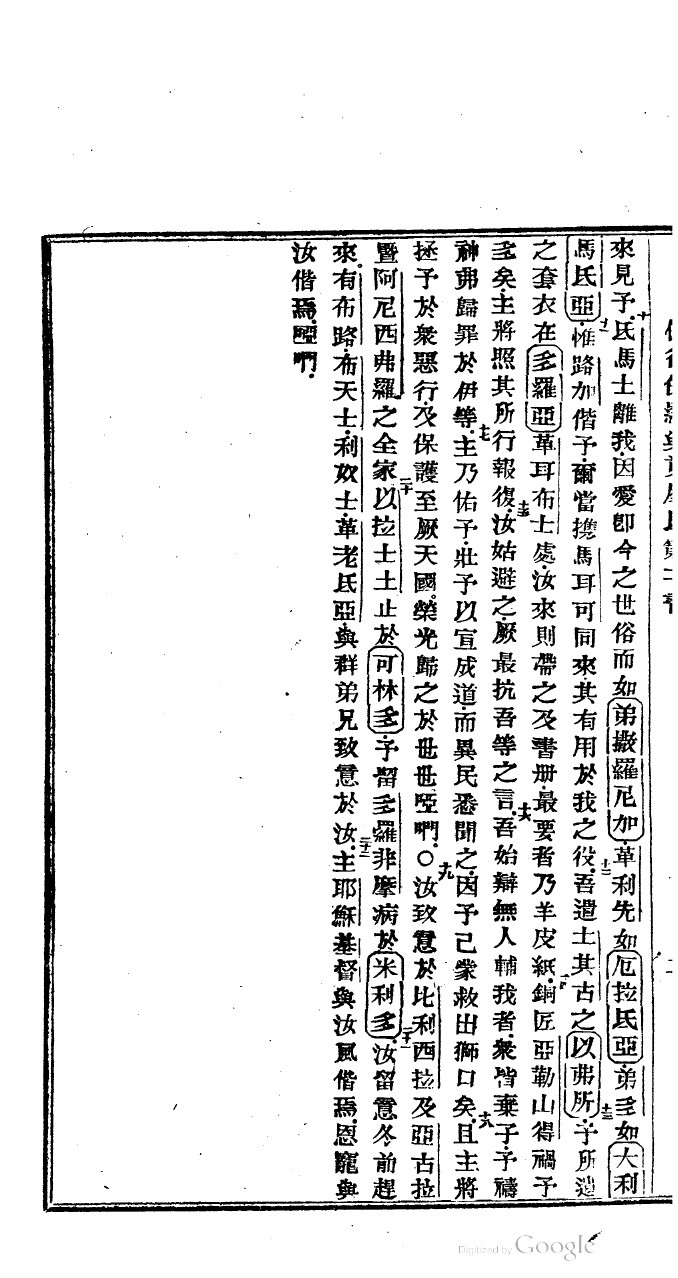 來見予氏馬士離我因愛卽今之世俗而如弟撒羅尼加革利先如厄拉氏亞弟多如大利
馬氏亞惟路加偕予爾當携馬耳可同來其有用於我之役吾遣士其古之以弗所予所遺
之套衣在多羅亞革耳布士處汝來則帶之及書册最要者乃羊皮紙銅匠亞勒山得禍予
多矣主將照其所行報復汝姑避之厥最抗吾等之言吾始辯無人輔我者衆皆棄予予禱
神弗歸罪於伊等主乃佑予壯予以宣成道而異民悉聞之因予己蒙救出獅口矣且主將
拯予於衆惡行及保護至厥天國榮光歸之於世世啞們○汝致意於比利西拉及亞古拉
暨阿尼西弗羅之全家以拉士土止於可林多予留多羅非摩病於米利多汝留意冬前趕
來有布路布天士利奴士革老氏亞與群弟兄致意於汝主耶穌基督與汝風偕焉恩寵與
汝偕焉啞們
十
十一
十二
十三
十五
十六
十七
十八
十九
二十
二十一
二十二
Digitized by Google